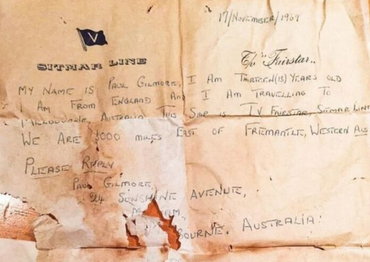 17/November/1969
V
SITMAR LINE
The "Fairstar"
MY NAME IS PAUL GILMORE, I AM THIRTEEN (13) YEARS OLD
I AM FROM ENGLAND AND I AM TRAVELLING TO
MELBOURNE, AUSTRALIA THIS SHIP IS T.V FAIRSTAR, SITMAR LINE
WE ARE 1000 MILES EAST OF FREMANTLE, WESTERN AUS
PLEASE REPLY
PAUL GILMORE,
94 SUNSHINE AVENUE,
BOURNE, AUSTRALIA.